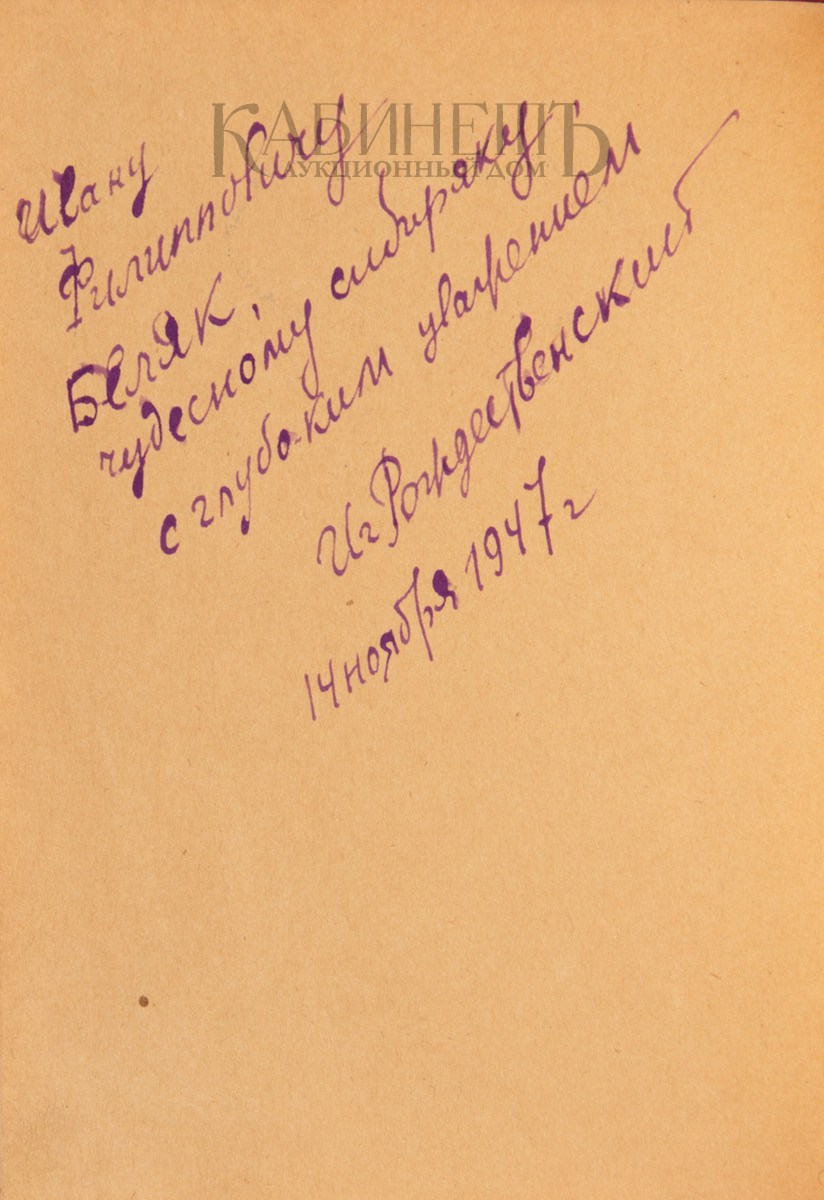 КАБИНЕТЪ
АУКЦИОННЫЙ ДОМ
Ивану
Филипповичу
Беляк,
чудесному сибиряку,
с глубоким уважением
Иг Рождественский
14 ноября 1947 г